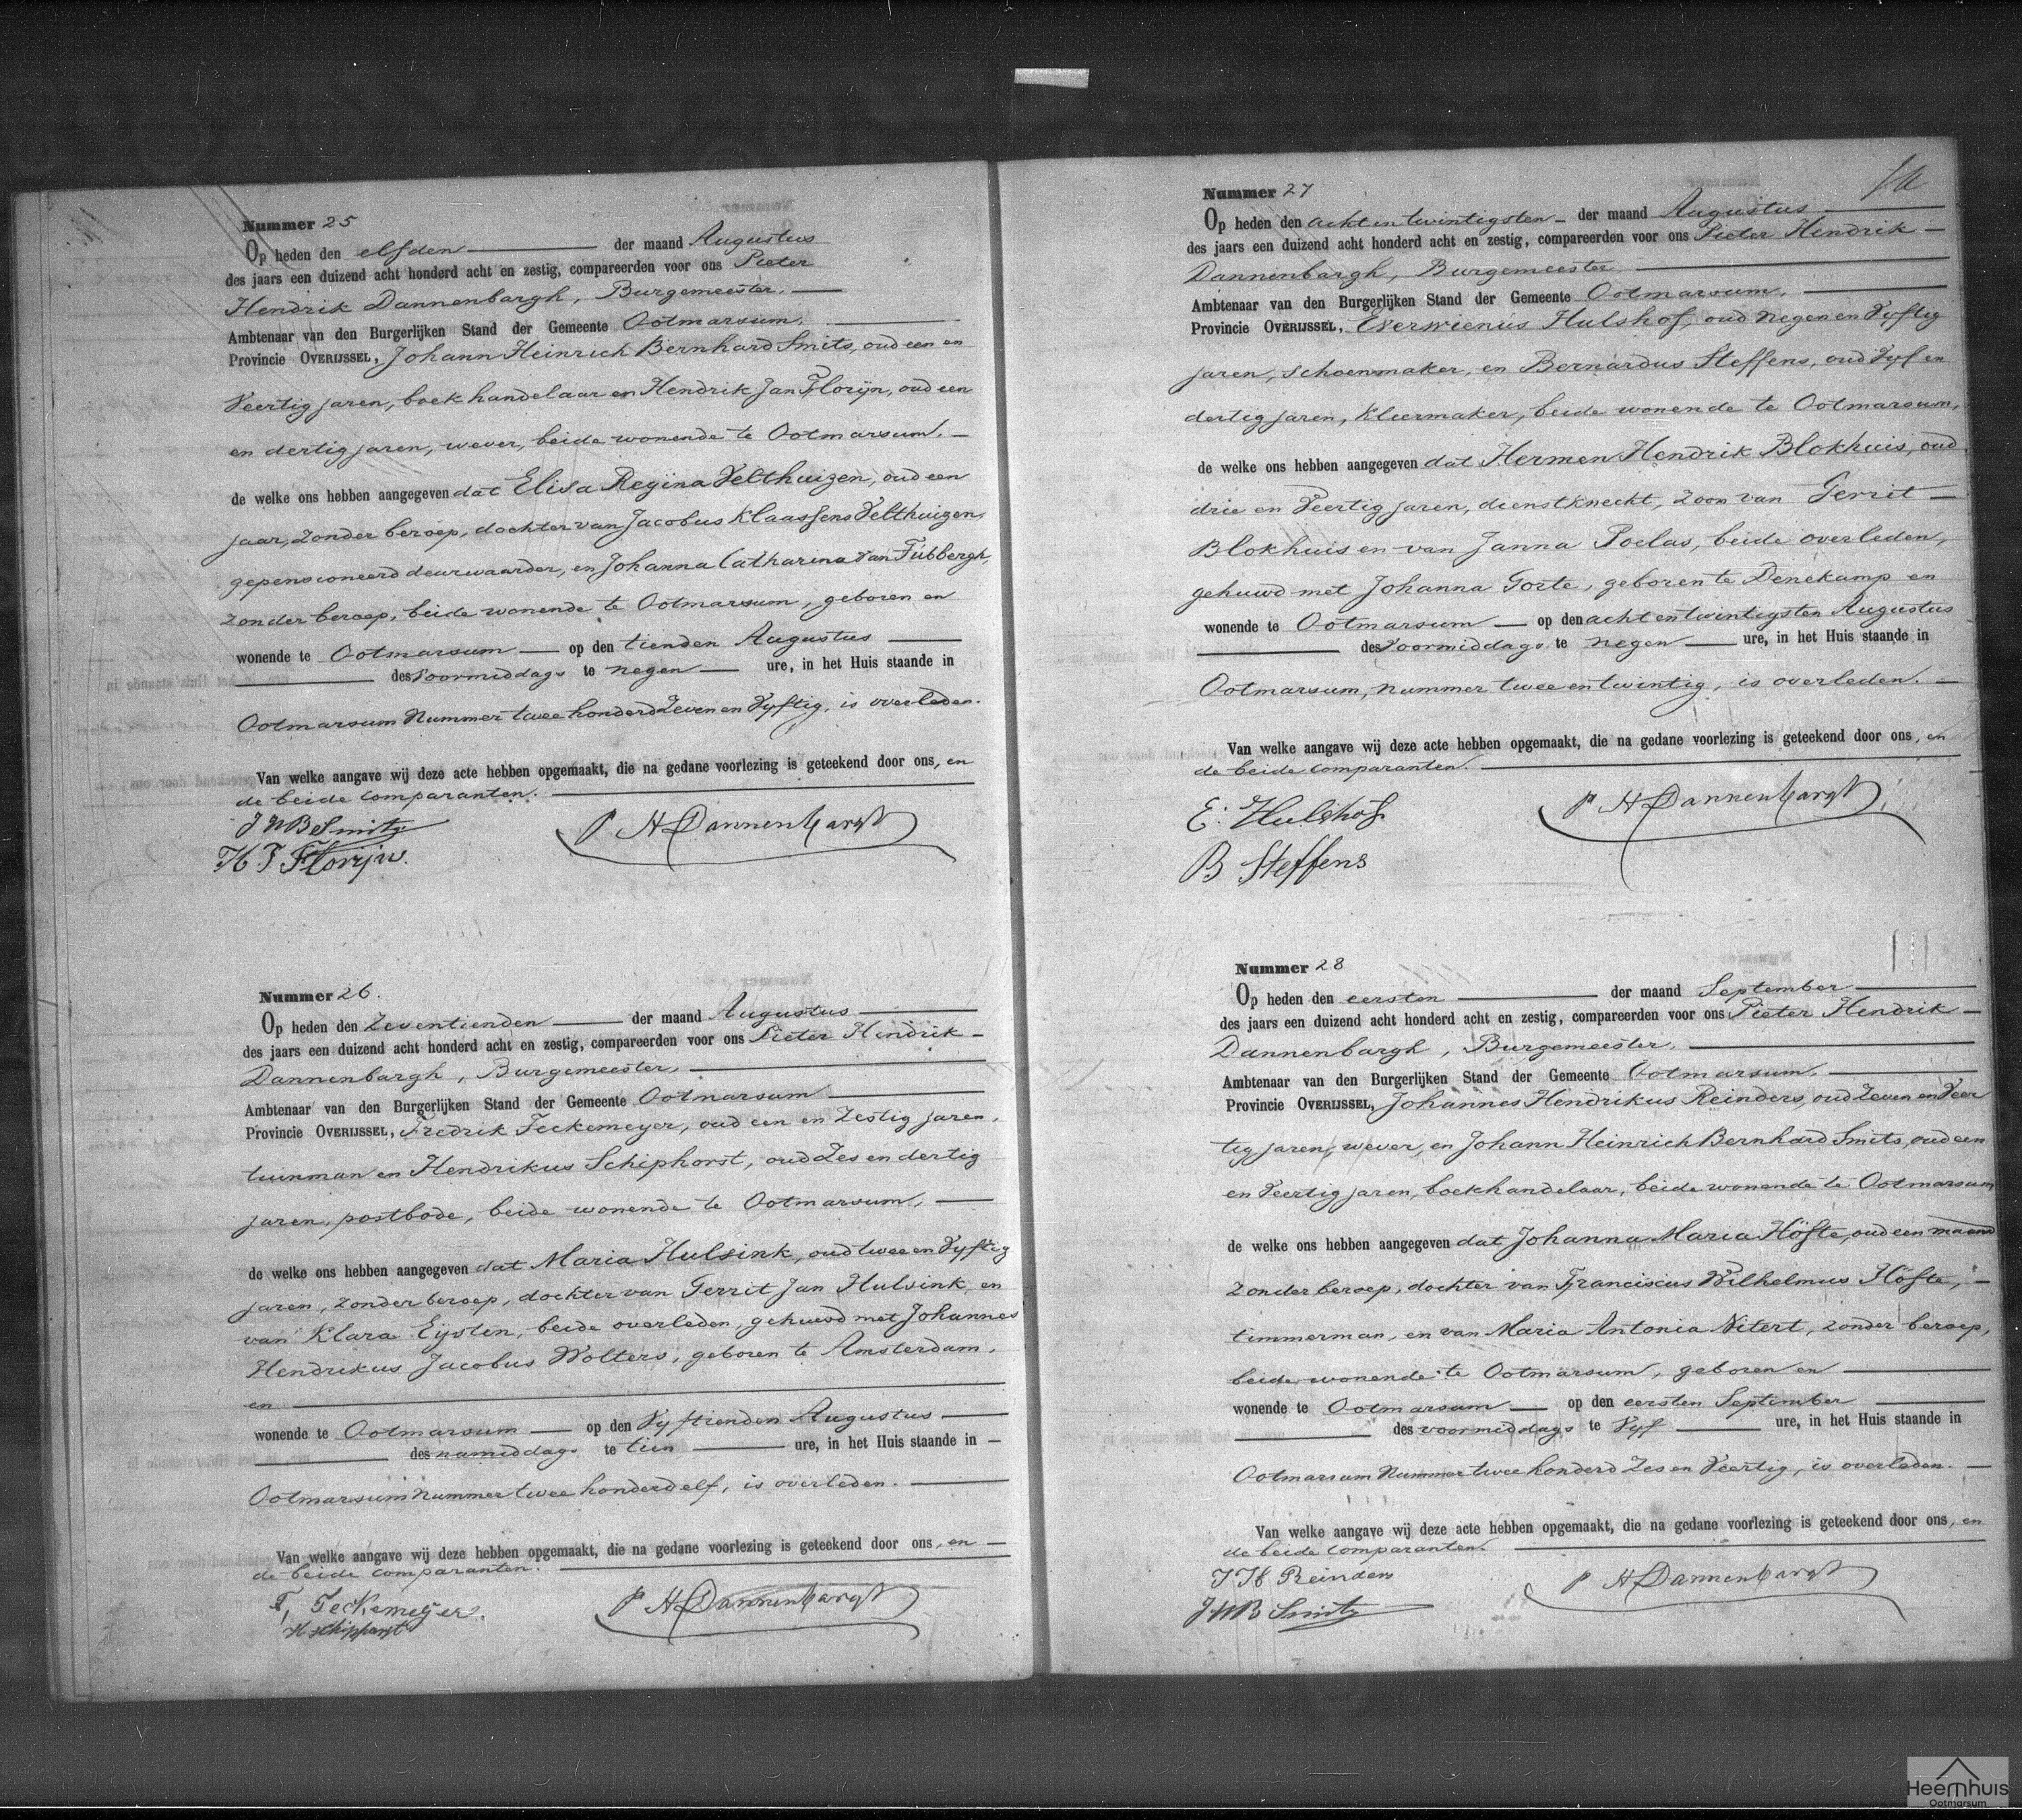 Nummer 25
Op heden den elfden der maand Augustus
des jaars een duizend acht honderd acht en zestig, compareerden voor ons Pieter
Hendrik Dannenbargh, Burgemeester,
Ambtenaar van den Burgerlijken Stand der Gemeente Ootmarsum,
Provincie OVERIJSSEL, Johann Heinrich Bernhard Smits, oud een en
veertig jaren, boekhandelaar en Hendrik Jan Florijn, oud een
en dertig jaren, wever, beide wonende te Ootmarsum,
de welke ons hebben aangegeven dat Elisa Regina Velthuizen, oud een
jaar, zonder beroep, dochter van Jacobus Klaassens Velthuizen,
gepensioneerd deurwaarder, en Johanna Catharina van Tubbergh,
zonder beroep, beide wonende te Ootmarsum, geboren en
wonende te Ootmarsum op den tienden Augustus
des voormiddags te negen ure, in het Huis staande in
Ootmarsum Nummer twee honderd zeven en vyftig, is overleden.
Van welke aangave wij deze acte hebben opgemaakt, die na gedane voorlezing is geteekend door ons, en
de beide comparanten.
J H B Smits
P H Dannenbargh
H J Florijn.
Nummer 26.
Op heden den zeventienden der maand Augustus
des jaars een duizend acht honderd acht en zestig, compareerden voor ons Pieter Hendrik
Dannenbargh, Burgemeester,
Ambtenaar van den Burgerlijken Stand der Gemeente Ootmarsum
Provincie OVERIJSSEL, Fredrik Teckemeyer, oud een en zestig jaren,
tuinman en Hendrikus Schiphorst, oud zes en dertig
jaren, postbode, beide wonende te Ootmarsum,
de welke ons hebben aangegeven dat Maria Hulsink, oud twee en vyftig
jaren, zonder beroep, dochter van Gerrit Jan Hulsink, en
van Klara Eysten, beide overleden, gehuwd met Johannes
Hendrikus Jacobus Wolters, geboren te Amsterdam,
en
wonende te Ootmarsum op den vyftienden Augustus
des namiddags te tien ure, in het Huis staande in
Ootmarsum nummer twee honderd elf, is overleden.
Van welke aangave wij deze hebben opgemaakt, die na gedane voorlezing is geteekend door ons, en
de beide comparanten.
F, Teckemeyer.
P H Dannenbargh
H Schiphorst
Nummer 27
Op heden den acht en twintigsten der maand Augustus
des jaars een duizend acht honderd acht en zestig, compareerden voor ons Pieter Hendrik
Dannenbargh, Burgemeester
Ambtenaar van den Burgerlijken Stand der Gemeente Ootmarsum,
Provincie OVERIJSSEL, Everwienus Hulshof, oud negen en vyftig
jaren, schoenmaker, en Bernardus Steffens, oud vyf en
dertig jaren, kleermaker, beide wonende te Ootmarsum,
de welke ons hebben aangegeven dat Hermen Hendrik Blokhuis, oud
drie en veertig jaren, dienstknecht, zoon van Gerrit
Blokhuis en van Janna Poelas, beide overleden,
gehuwd met Johanna Goste, geboren te Denekamp en
wonende te Ootmarsum op den acht en twintigsten Augustus
des voormiddags te negen ure, in het Huis staande in
Ootmarsum, nummer twee en twintig, is overleden.
Van welke aangave wij deze acte hebben opgemaakt, die na gedane voorlezing is geteekend door ons, en
de beide comparanten.
E. Hulshof
P H Dannenbargh
B Steffens
Nummer 28
Op heden den eersten der maand September
des jaars een duizend acht honderd acht en zestig, compareerden voor ons Pieter Hendrik
Dannenbargh, Burgemeester,
Ambtenaar van den Burgerlijken Stand der Gemeente Ootmarsum,
Provincie OVERIJSSEL, Johannes Hendrikus Reinders, oud zeven en veer
tig jaren, wever, en Johann Heinrich Bernhard Smits, oud een
en veertig jaren, boekhandelaar, beide wonende te Ootmarsum
de welke ons hebben aangegeven dat Johanna Maria Höfte, oud een maand
zonder beroep, dochter van Franciscus Wilhelmus Höfte,
timmerman, en van Maria Antonia Nitert, zonder beroep,
beide wonende te Ootmarsum, geboren en
wonende te Ootmarsum op den eersten September
des voormiddags te vyf ure, in het Huis staande in
Ootmarsum Nummer twee honderd zes en veertig, is overleden.
Van welke aangave wij deze acte hebben opgemaakt, die na gedane voorlezing is geteekend door ons, en
de beide comparanten.
J H Reinders
P H Dannenbargh
J H B Smits
Heemhuis
Ootmarsum